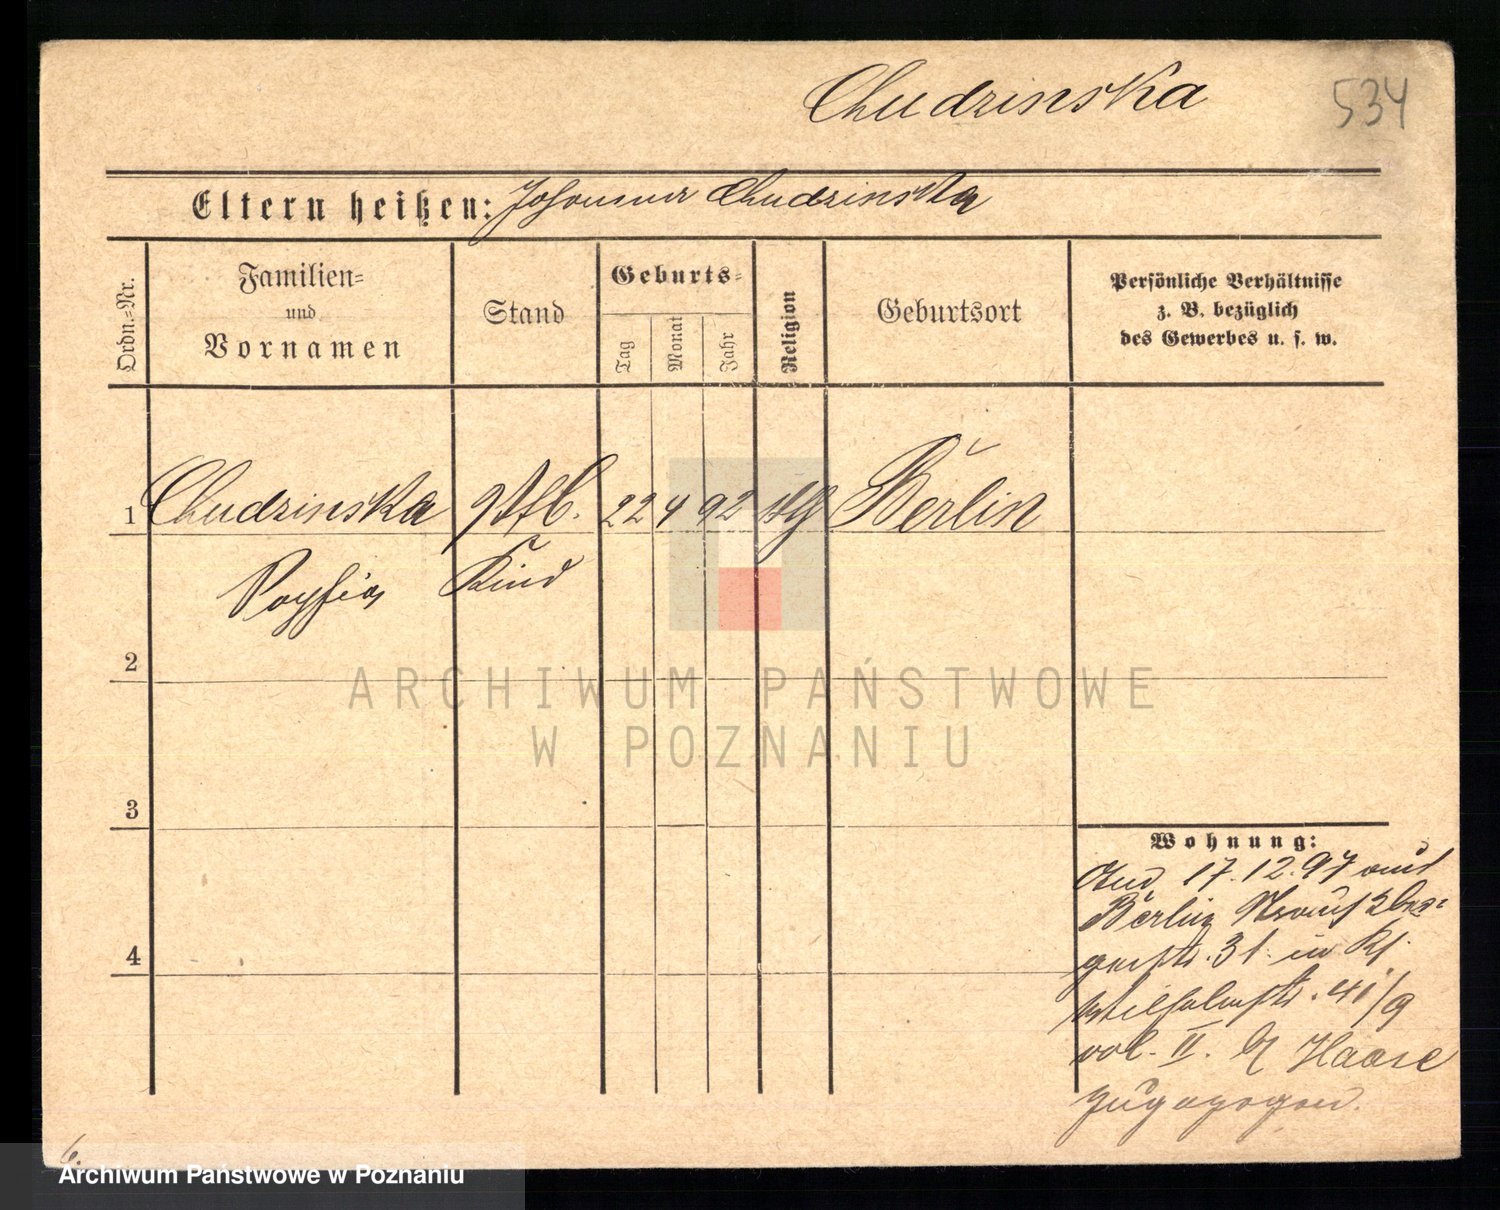 Chudzinska
534
Eltern heißen: Johanna Chudzinska
Ordn.=Nr.
Familien=
und
Vornamen
Stand
Geburts=
Tag
Monat
Jahr
Religion
Geburtsort
Persönliche Verhältnisse
z. B. bezüglich
des Gewerbes u. s. w.
1 Chudzinska 22 4 92 Berlin
Sophia Kind
2
ARCHIWUM PAŃSTWOWE
W POZNANIU
3
4
Wohnung:
17.12.97 aus
Berlin Strausber=
gerstr. 31 in
Wilhelmstr. 41/9
vol. II. b/ Haase
zugezogen.
6.
Archiwum Państwowe w Poznaniu